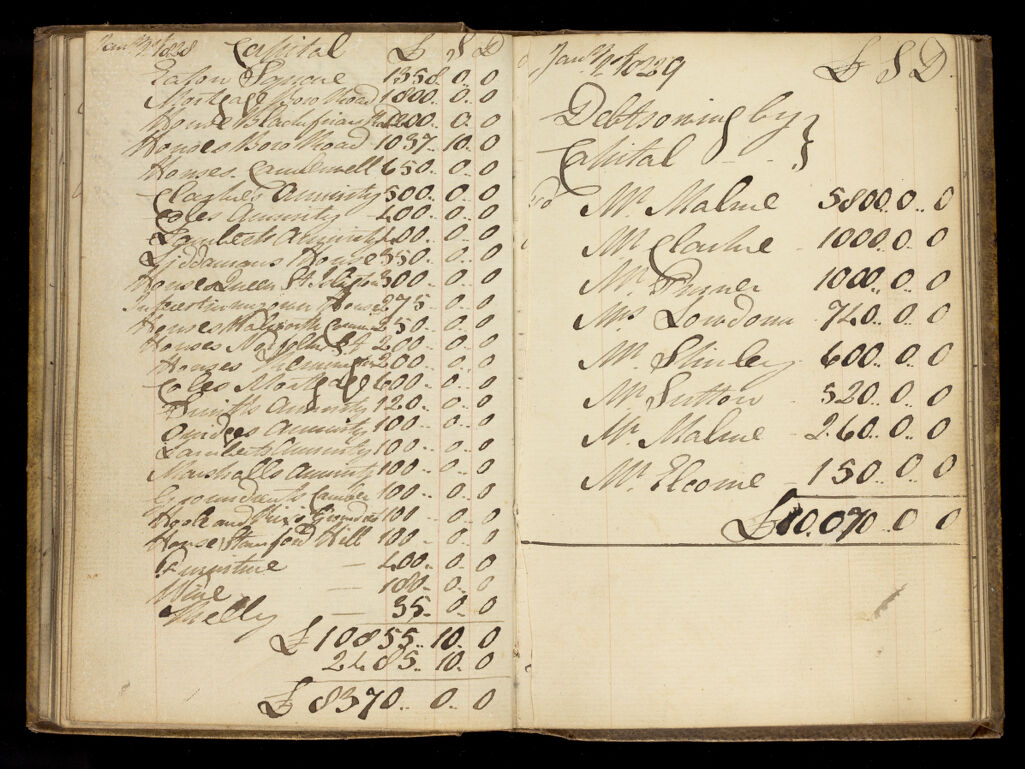 Jany 1st 1828 Capital £ S D
Eaton Square 1358.. 0.. 0
Mortgage Boro Road 1800.. 0.. 0
House Blackfriars Road 0.. 0
Houses Boro Road 1037.. 10.. 0
Houses Camberwell 650.. 0.. 0
Clarkes Annuity 500.. 0.. 0
Coles Annuity 400.. 0.. 0
Lamberts Annuity 400.. 0.. 0
House 350.. 0.. 0
House Queen St Islington 300.. 0.. 0
my own House 275.. 0.. 0
Houses Walworth Common 250.. 0.. 0
Houses Norfolk St 200.. 0.. 0
Houses Kennington 200.. 0.. 0
Coles Mortgage 600.. 0.. 0
Smiths Annuity 120.. 0.. 0
Annuity 100.. 0.. 0
Lamberts Annuity 100.. 0.. 0
Marshalls Annuity 100.. 0.. 0
Camber 100.. 0.. 0
Hook and 100.. 0.. 0
House Stamford Hill 100.. 0.. 0
Furniture — 400.. 0.. 0
Wine — 180.. 0.. 0
Shelly — 35.. 0.. 0
£ 10855.. 10.. 0
2485.. 10.. 0
£ 8370.. 0.. 0
Jany 1st 1829 £ S D.
Debts owing by }
Capital - - }
To Mr. Malme 5800.. 0.. 0
Mr. Clarke - 1000.. 0.. 0
Mr. 1000.. 0.. 0
Mrs Lowdonn - 720.. 0.. 0
Mr. Shirley 600.. 0.. 0
Mr. Sutton - 520.. 0.. 0
Mr. Malme - 260.. 0.. 0
Mr. Elcome - 150.. 0.. 0
£10.070.. 0.. 0